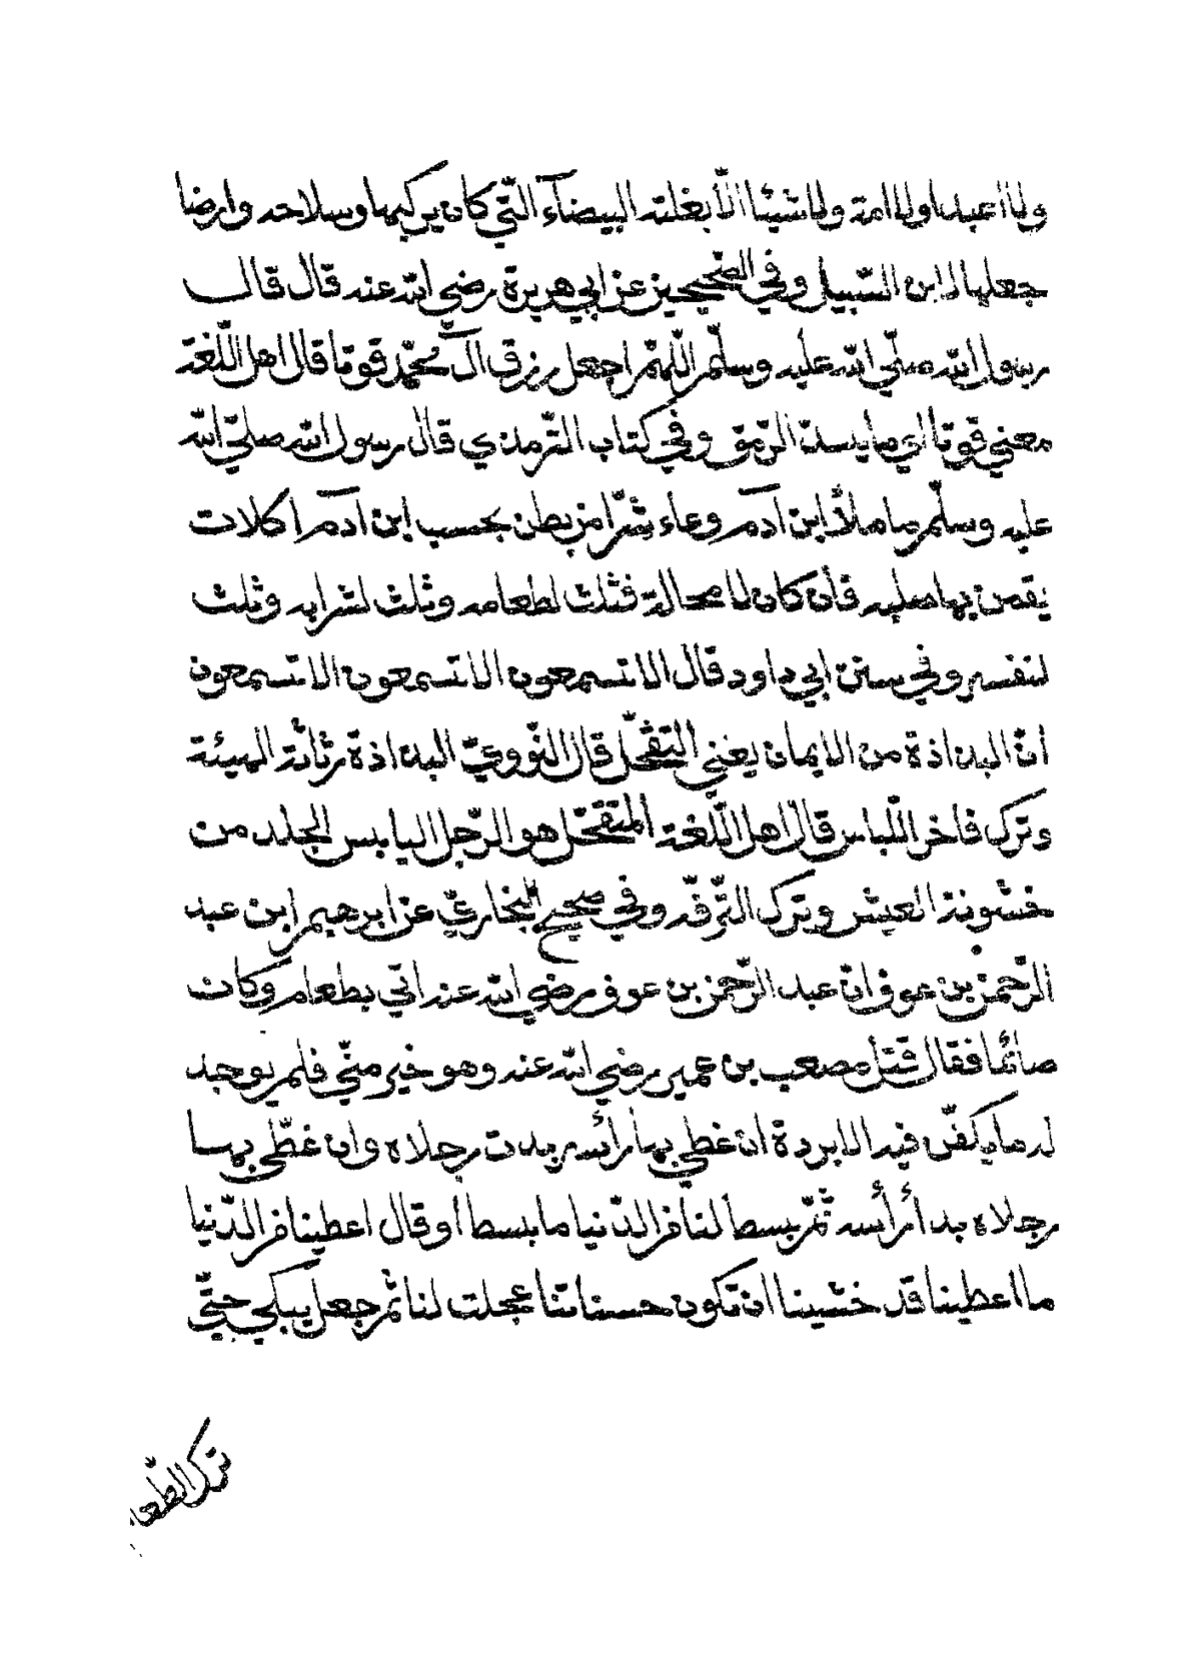 ولا عبدا ولا امة ولا شيئا الّا بغلته البيضآء التّي كان يركبها وسلاحه وارضا
جعلها لابن السّبيل وفي الصّحيحين عن ابي هريرة رضي الله عنه قال قال
رسول الله صلّي الله عليه وسلّم اللّهمّ اجعل رزق آل محمّد قوتا قال اهل اللّغة
معني قوتا اي ما يسدّ الرّمق وفي كتاب التّرمذي قال رسول الله صلّي الله
عليه وسلّم ما ملأ ابن آدم وعاء شرّا من بطن بحسب ابن آدم اكلات
يقمن بها صلبه فأن كان لا محالة فثلث لطعامه وثلث لشرابه وثلث
لنفسه وفي سنن ابي داود قال الا تسمعون الا تسمعون الا تسمعون
انّ البذاذة من الايمان يعني التقحّل قال النّوويّ البذاذة رثاثة الهيئة
وترك فاخر اللّباس قال اهل اللّغة المتقحّل هو الرّجل اليابس الجلد من
خشونة العيش وترك التّرفّه وفي صحيح البخاريّ عن ابرهيم ابن عبد
الرّحمن بن عوف انّ عبد الرّحمن بن عوف رضي الله عنه اتي بطعام وكان
صائما فقال قتل مصعب بن عمير رضي الله عنه وهو خير منّي فلم يوجد
له ما يكفّن فيه الا بردة ان غطي بها رأسه بدت رجلاه وان غطّي بها
رجلاه بدأ رأسه ثمّ بسط لنا من الدّنيا ما بسط أو قال اعطينا من الدّنيا
ما اعطينا قد خشينا ان تكون حسناتنا عجلت لنا ثم جعل يبكي حتّي
ترك الطّعا